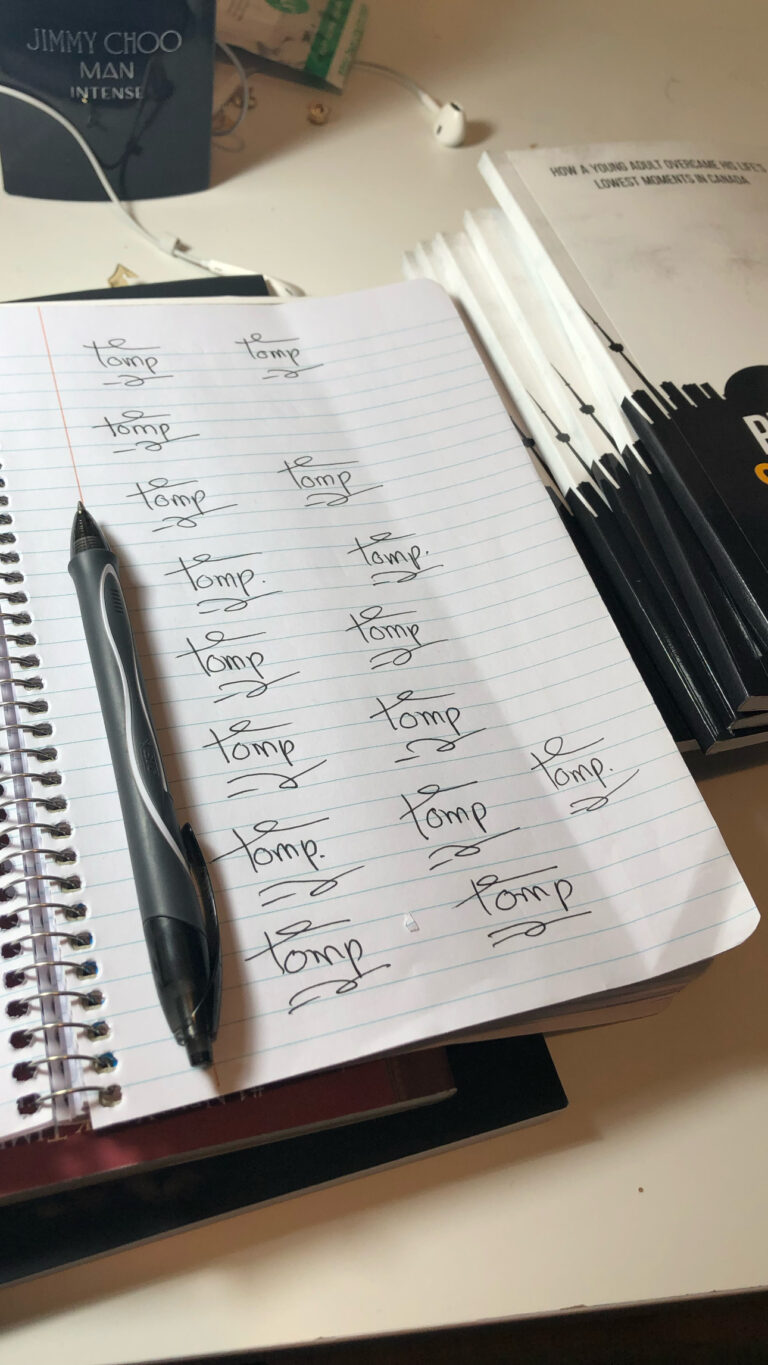 JIMMY CHOO
MAN
INTENSE
HOW A YOUNG ADULT OVERCAME HIS LIFE'S
LOWEST MOMENTS IN CANADA
Tomp Tomp
Tomp
Tomp Tomp
Tomp. Tomp.
Tomp Tomp
Tomp Tomp
Tomp.
Tomp. Tomp
Tomp
Tomp